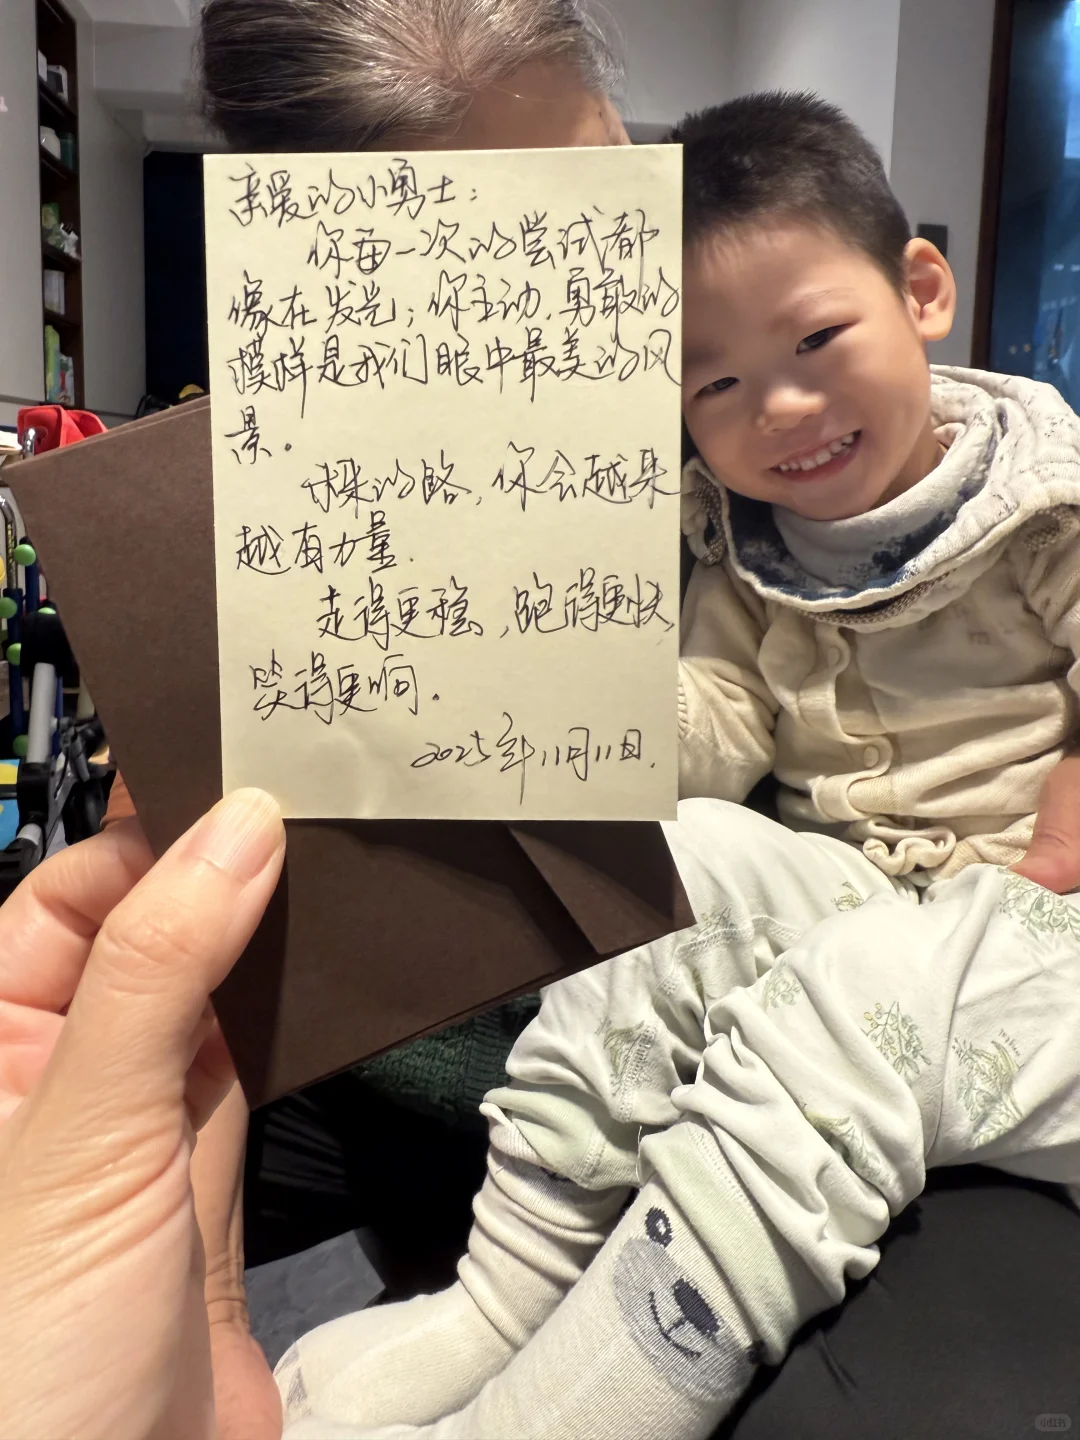 亲爱的小勇士:
你每一次的尝试都
像在发光;你主动、勇敢的
模样是我们眼中最美的风
景。
未来的路,你会越来
越有力量.
走得更稳,跑得更快,
笑得更响.
2025年11月11日.
小红书